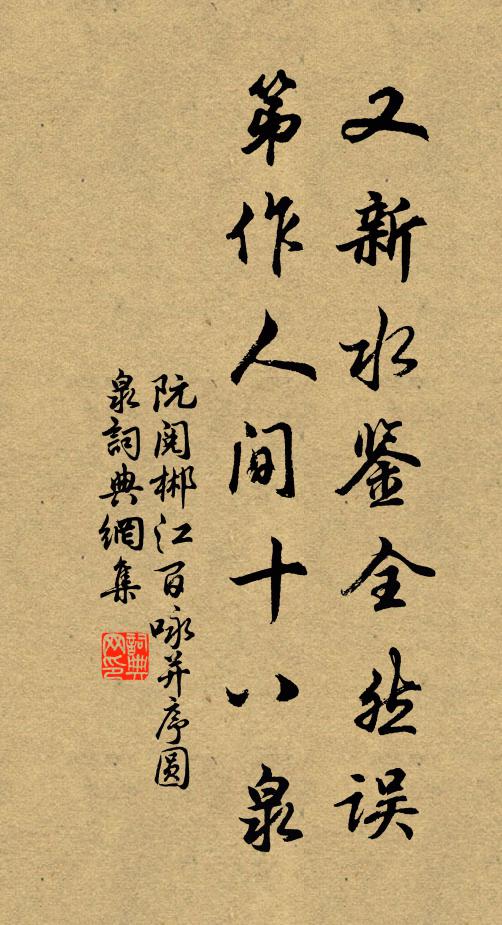 又新水鉴全然误
第作人间十八泉
阮阅郴江百咏并序圆
泉詞典網集
詞典网印